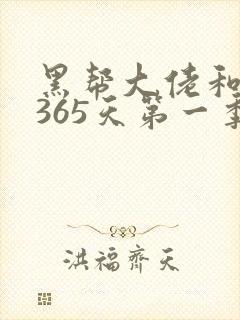 黑帮大佬和
365天第一季
洪福齐天